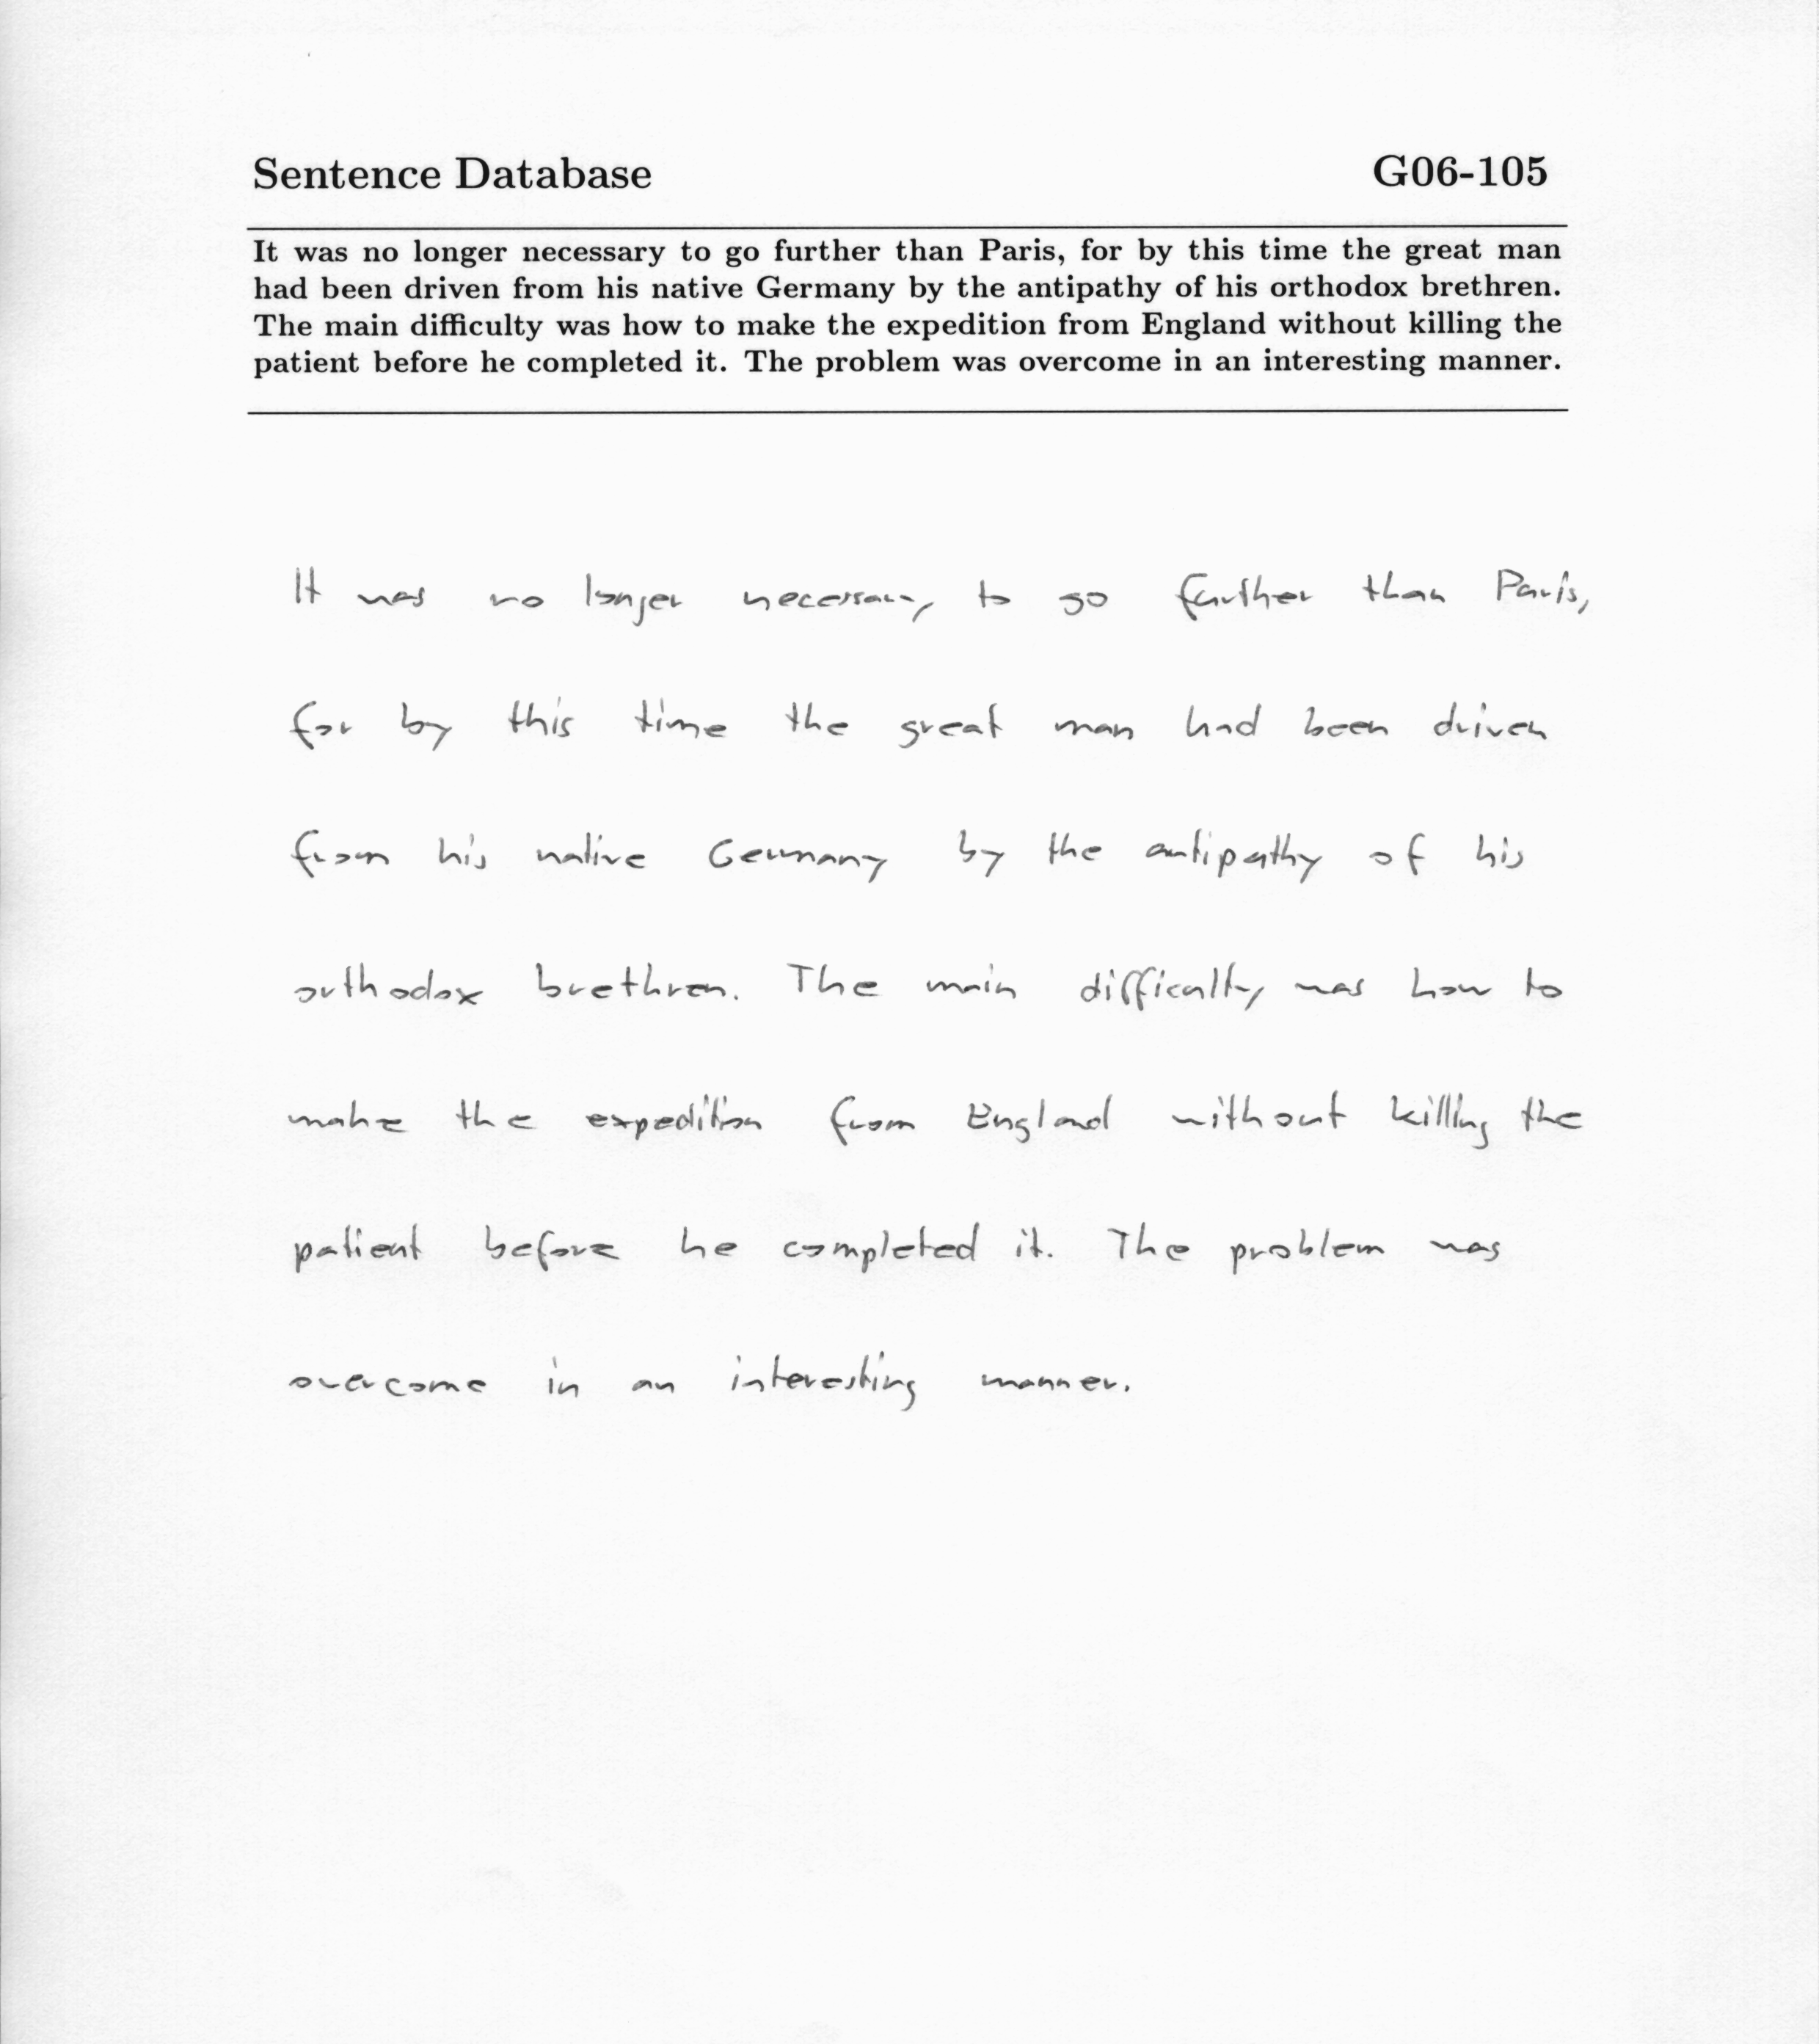 Sentence Database G06-105
It was no longer necessary to go further than Paris, for by this time the great man
had been driven from his native Germany by the antipathy of his orthodox brethren.
The main difficulty was how to make the expedition from England without killing the
patient before he completed it. The problem was overcome in an interesting manner.
It was no longer necessary to go further than Paris,
for by this time the great man had been driven
from his native Germany by the antipathy of his
orthodox brethren. The main difficulty was how to
make the expedition from England without killing the
patient before he completed it. The problem was
overcome in an interesting manner.